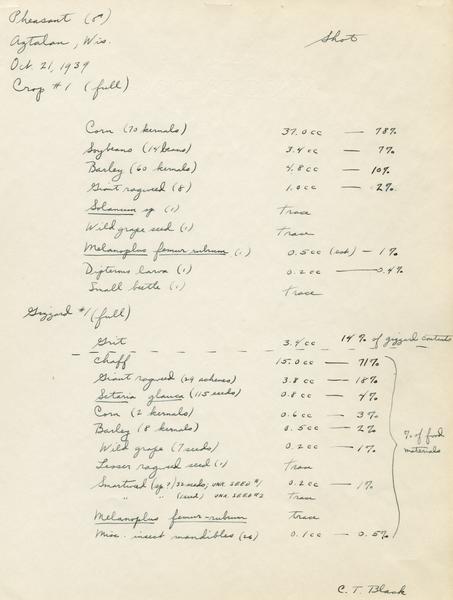 Pheasant (♂)
Aztalan, Wis.
Shot
Oct. 21, 1939
Crop #1 (full)
Corn (70 kernals) 37.0 cc — 78%
Soybeans (14 beans) 3.4 cc — 7%
Barley (60 kernals) 4.8 cc — 10%
Giant ragweed (8) 1.0 cc — 2%
Solanum sp (1) trace
Wild grape seed (1) trace
Melanoplus femur-rubrum (1) 0.5 cc (est) — 1%
Dipterus larva (1) 0.2 cc — 0.4%
Small beetle (1) trace
Gizzard #1 (full)
Grit 3.4 cc 14% of gizzard contents
Chaff 15.0 cc — 71%
Giant ragweed (29 achenes) 3.8 cc — 18%
Setaria glauca (115 seeds) 0.8 cc — 4%
Corn (2 kernals) 0.6 cc — 3%
Barley (8 kernals) 0.5 cc — 2%
% of food
materials
Wild grape (7 seeds) 0.2 cc — 1%
Lesser ragweed seed (1) trace
Smartweed (sp?) 32 seeds; UNK. SEED #1 0.2 cc — 1%
" " (1 seed) UNK. SEED #2 trace
Melanoplus femur-rubrum trace
Misc. insect mandibles (26) 0.1 cc — 0.5%
C. T. Black